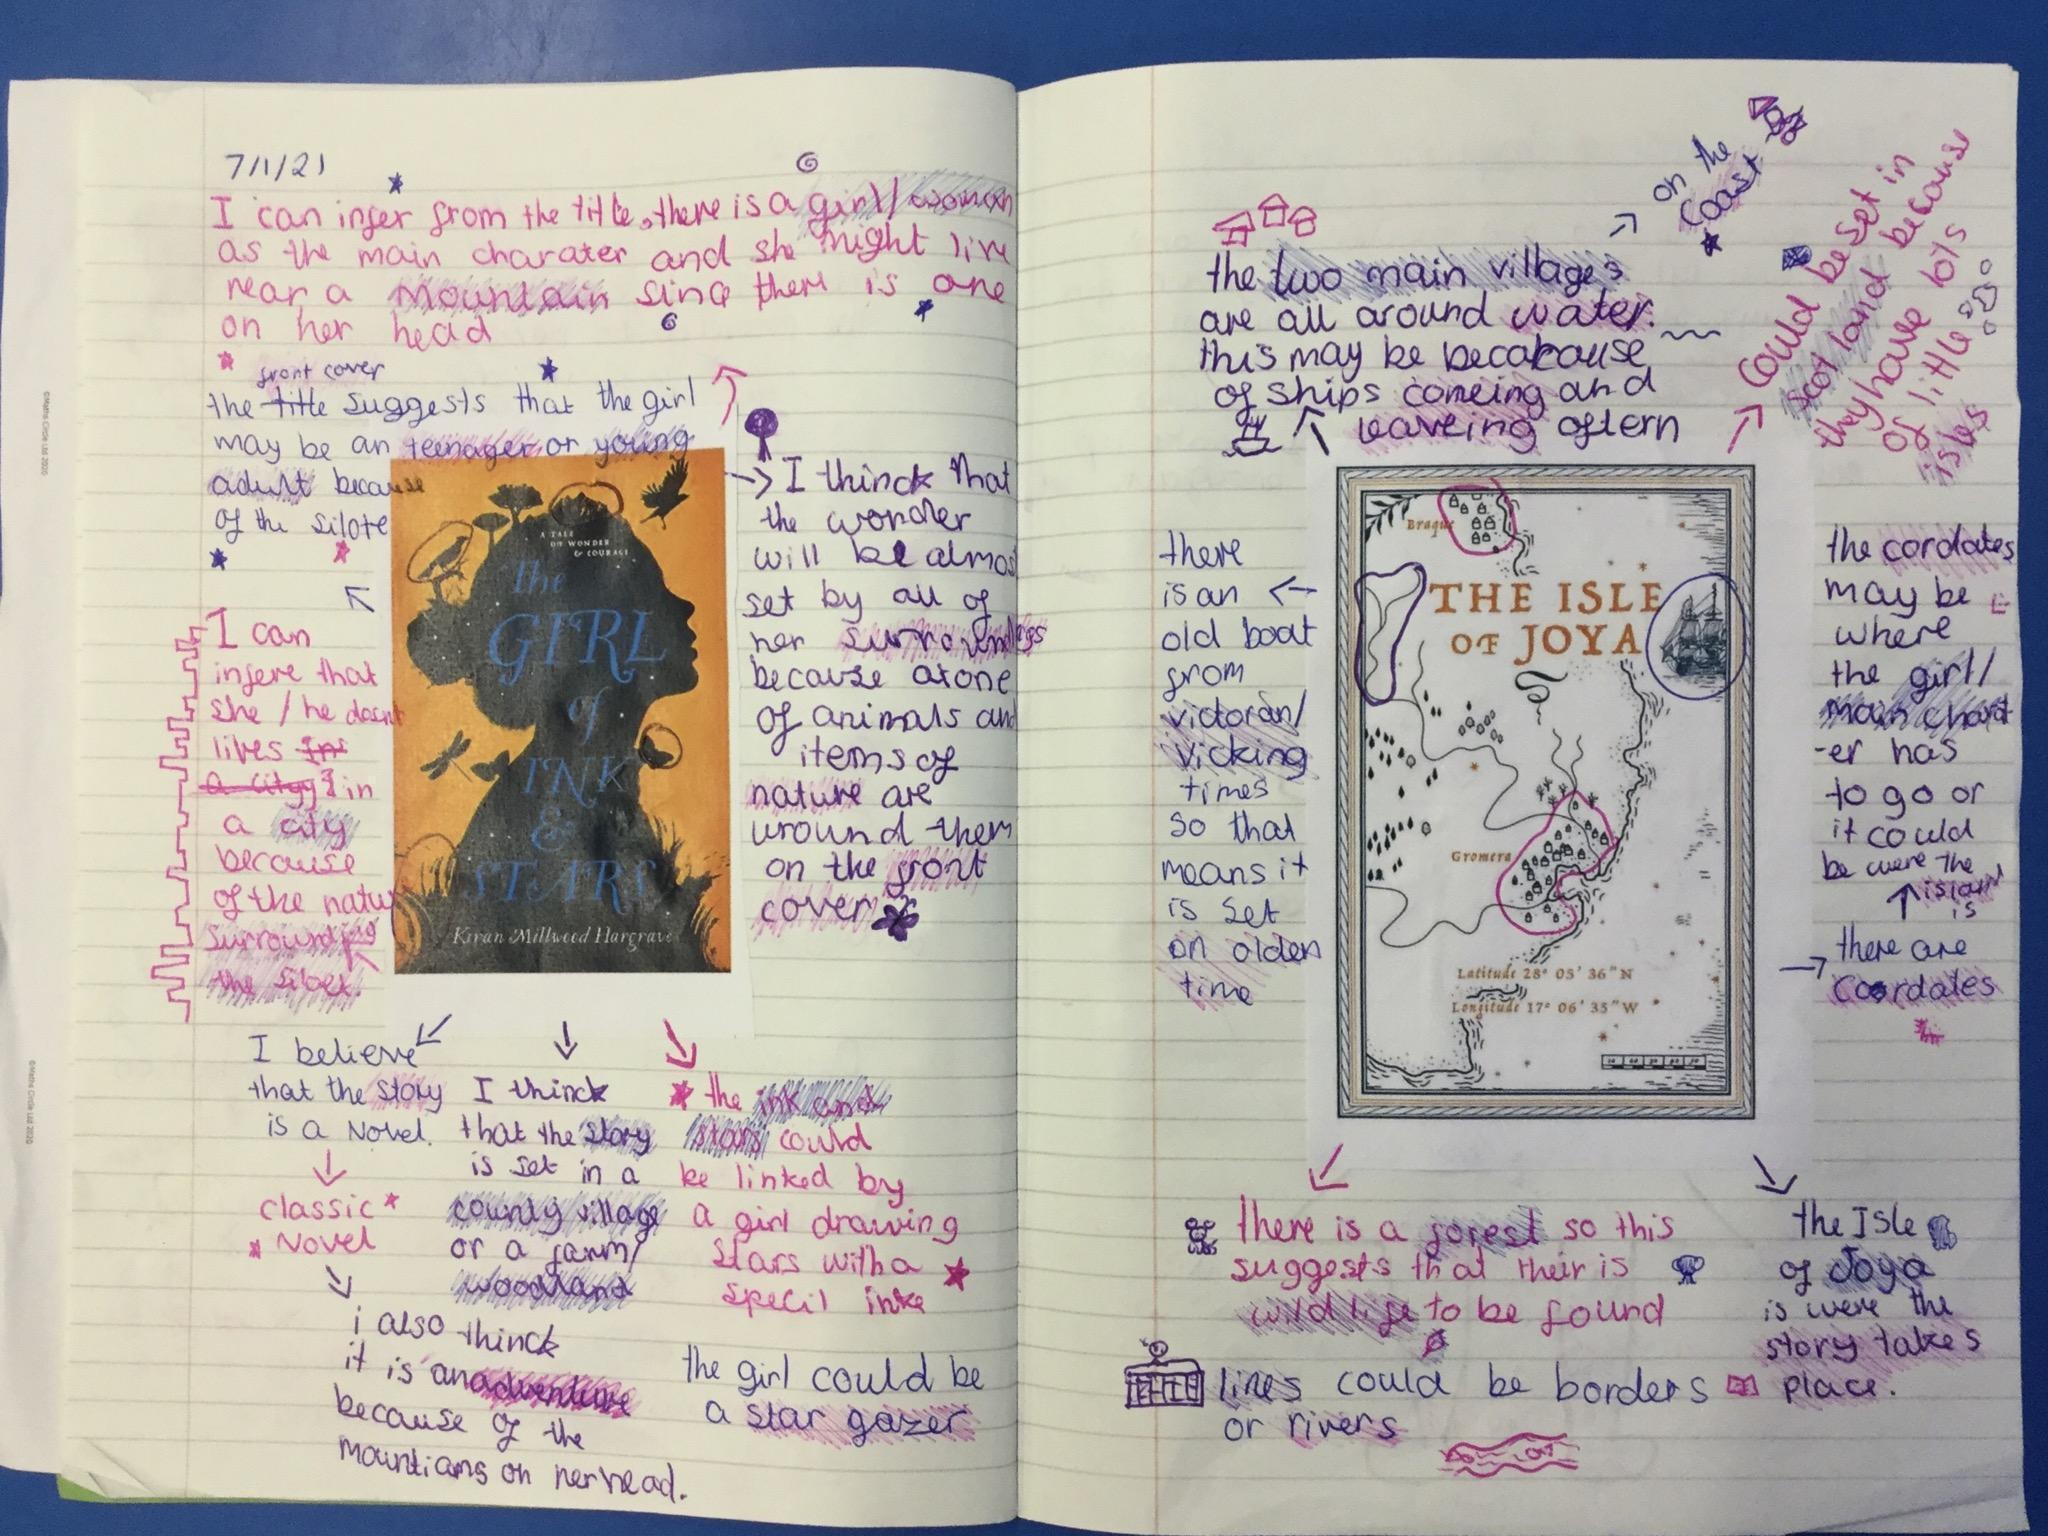 7/1/21
I can infer from the title, there is a girl/woman
as the main charater and she might live
near a mountain since there is one
on her head
front cover
the title suggests that the girl
may be an teenager or young
adult because
of the silote
I can
infere that
she/he doesnt
lives in
a city? in
a city
because
of the natur
surrounding
the siloet.
A TALE
OF WONDER
& COURAGE
the
GIRL
of
INK
&
STARS
Kiran Millwood Hargrave
I thinck that
the wonder
will be almos
set by all of
her surroundings
because atone
of animals and
items of
nature are
uround them
on the front
cover
I believe
that the story
is a Novel.
classic
Novel
i also thinck
it is an adventure
because of the
mountians on her head.
I thinck
that the story
is set in a
county village
or a farm/
woodland
the ink and
stars could
be linked by
a girl drawing
stars with a
specil inke
the girl could be
a star gazer
©Maths Circle Ltd 2020
©Maths Circle Ltd 2020
the two main villages
are all around water.
this may be becabause
of ships comeing and
leaveing oftern
on the
coast
could be set in
scotland because
they have lots
of little
isles
there
is an
old boat
from
victoran/
vicking
times
so that
means it
is set
on olden
time
Braque
THE ISLE
OF JOYA
Gromera
Latitude 28° 05' 36" N
Longitude 17° 06' 35" W
the cordates
may be
where
the girl/
main charat
-er has
to go or
it could
be were the
island
is
there are
coordates
there is a forest so this
suggests that their is
wild life to be found
lines could be borders
or rivers
the Isle
of Joya
is were the
story takes
place.